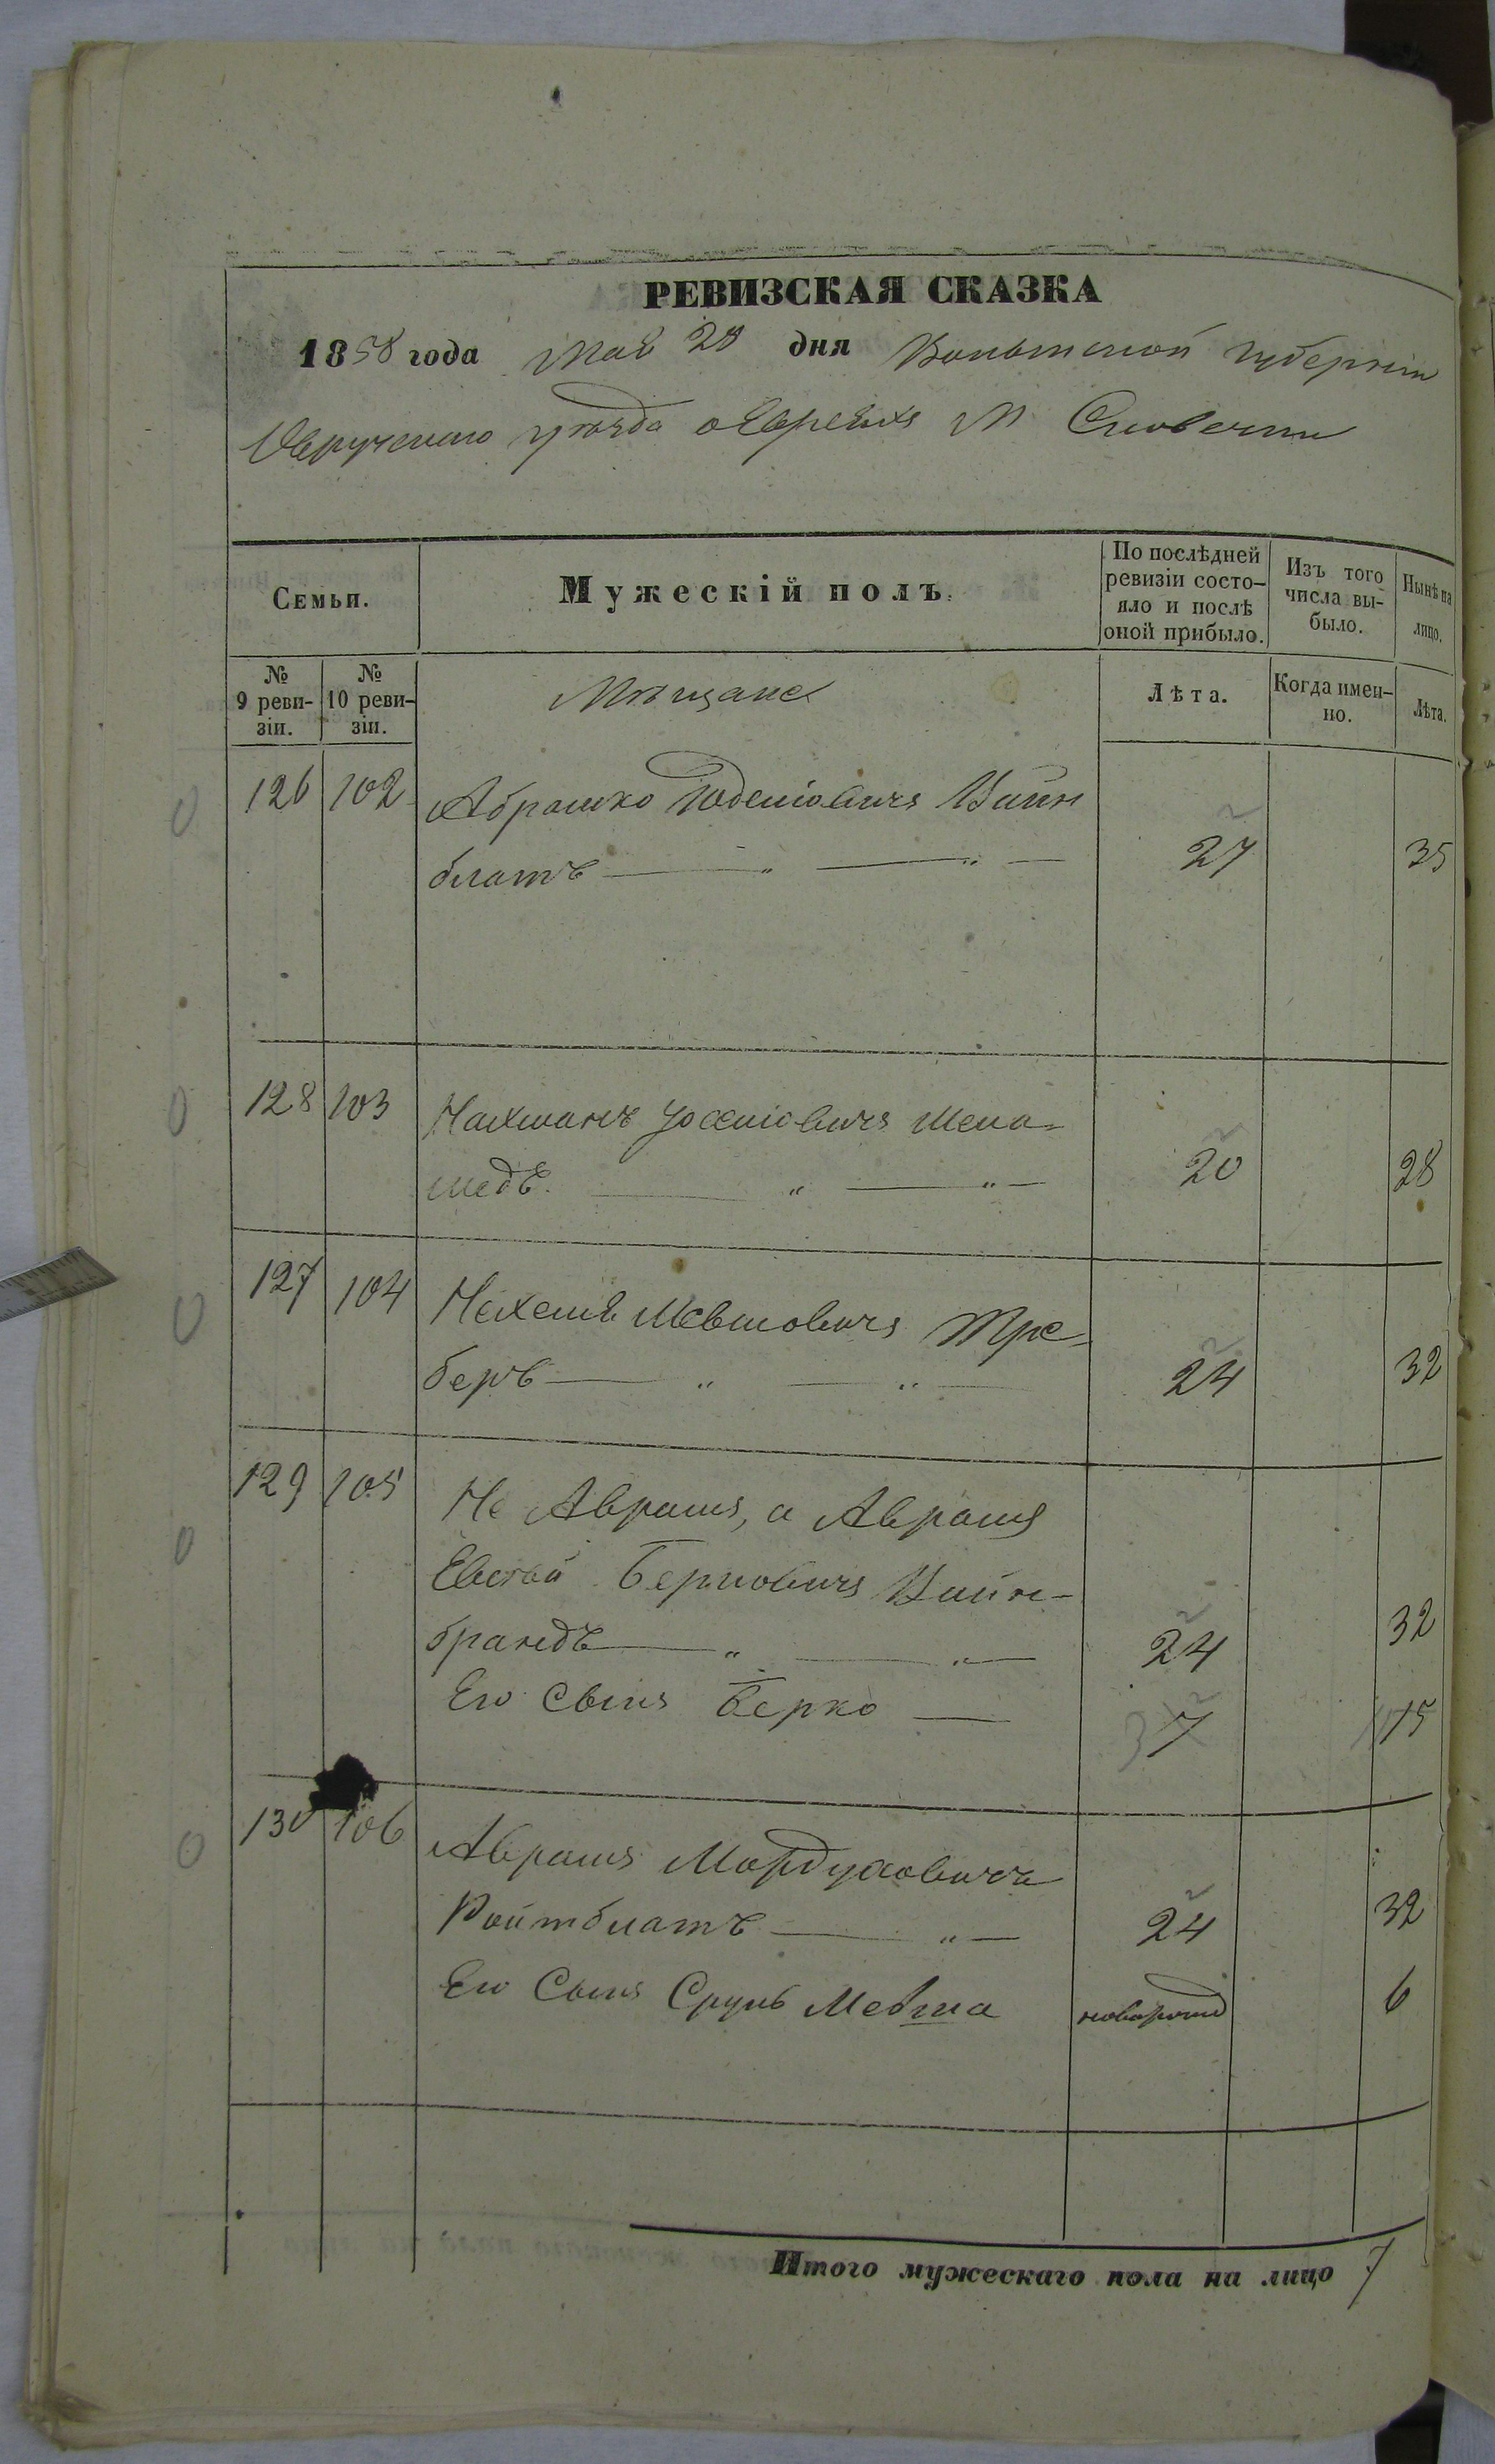 РЕВИЗСКАЯ СКАЗКА
1858 года Мая 28 дня Волынской губернии
Овручского уѣзда о Евреяхъ М Словечни
Семьи.
Мужескій полъ.
По послѣдней ревизіи состо-
яло и послѣ
оной прибыло.
Изъ того
числа вы-
было.
Нынѣ на
лицо.
№
9 реви-
зіи.
№
10 реви-
зіи.
Мѣщане
Лѣта.
Когда имен-
но.
Лѣта.
126 102 Абрамко Юдковичъ Вайн
блатъ 27 35
128 103 Нахманъ Іосіовичъ
20 28
127 104 Нехемя Мевшовичъ Тре-
беръ 24 32
129 105 Не Аврамъ, а Аврамъ
Берковичъ Вайн-
брандъ 24 32
Его Сынъ Берко 7 15
130 106 Аврамъ Мордуховичъ
Ройтблатъ 24 32
Его Сынъ Сруль Мевша новорожд 6
Итого мужескаго пола на лицо 7